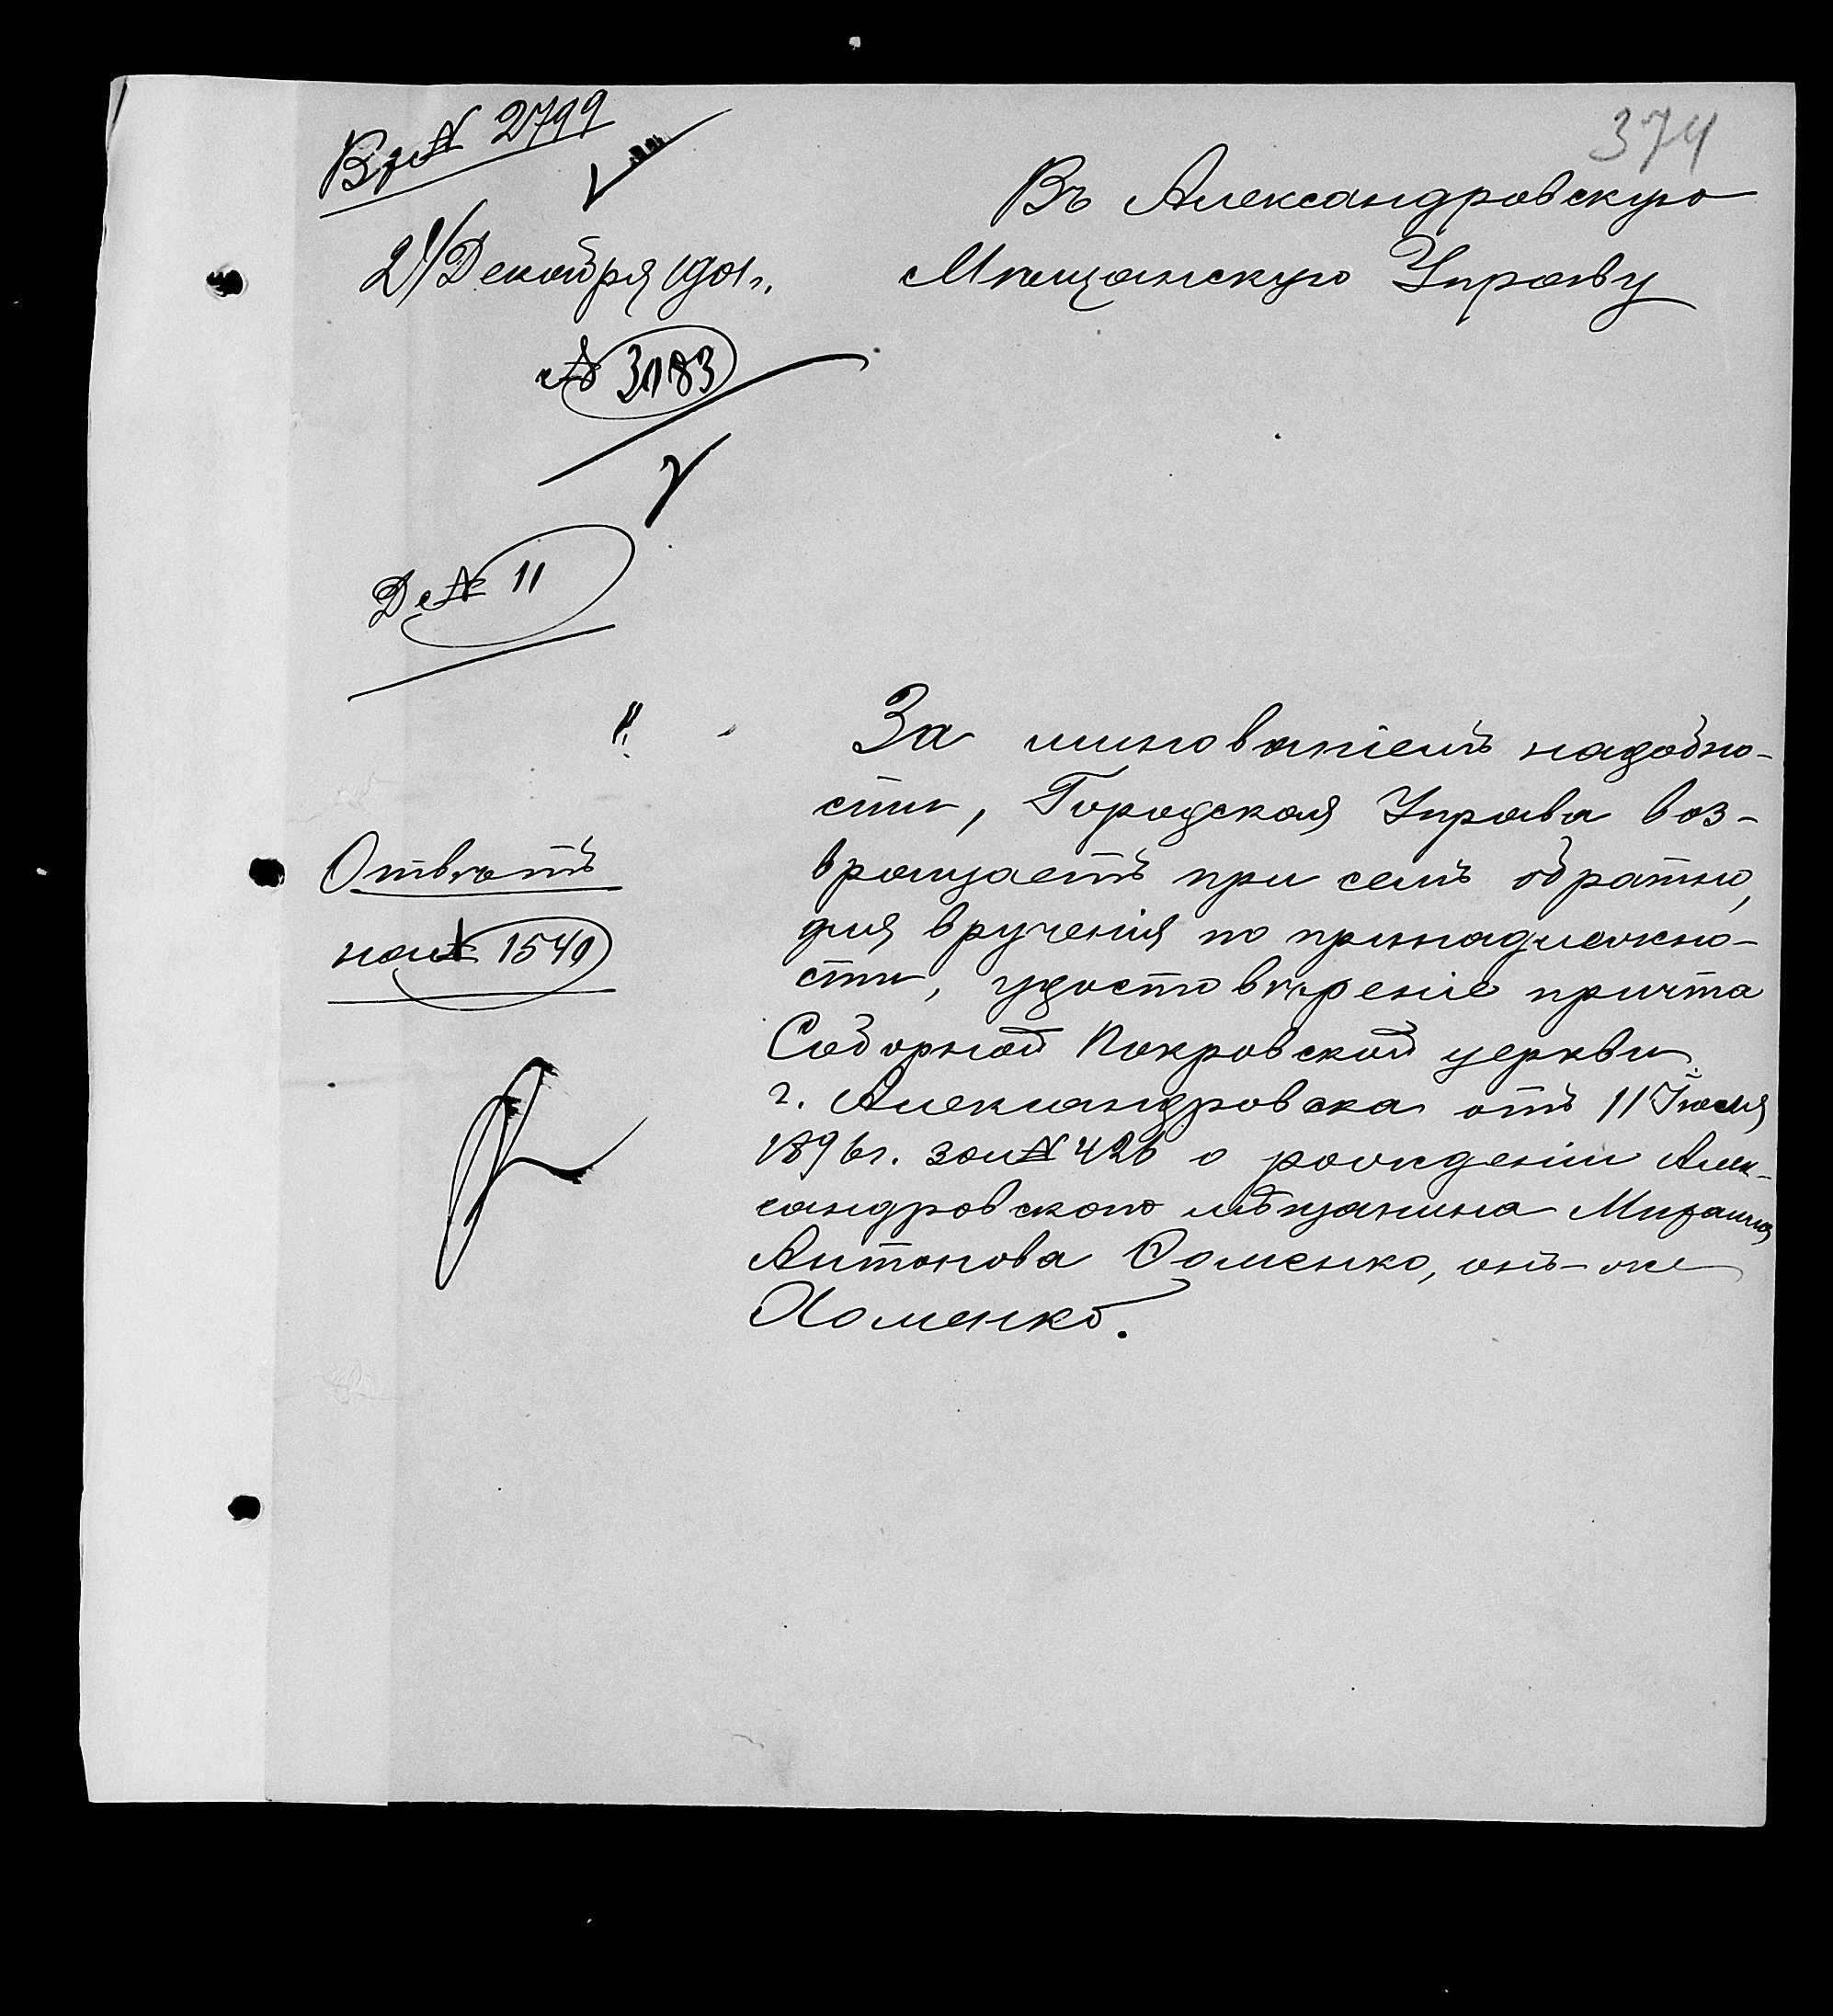 374
Вх № 2799
Въ Александровскую
Мѣщанскую Управу
21 Декабря 1901 г.
№ 3183
Д № 11
За минованіемъ надобно-
сти, Городская Управа воз-
вращаетъ при семъ обратно,
для врученія по принадлежно-
сти, удостовѣреніе причта
Соборной Покровской церкви
г. Александровска отъ 11 Іюля
1896 г. за № 426 о рожденіи Алек-
сандровскаго мѣщанина Михаила
Антонова Фоменко, онъ-же
Хоменко.
Отвѣтъ
на №